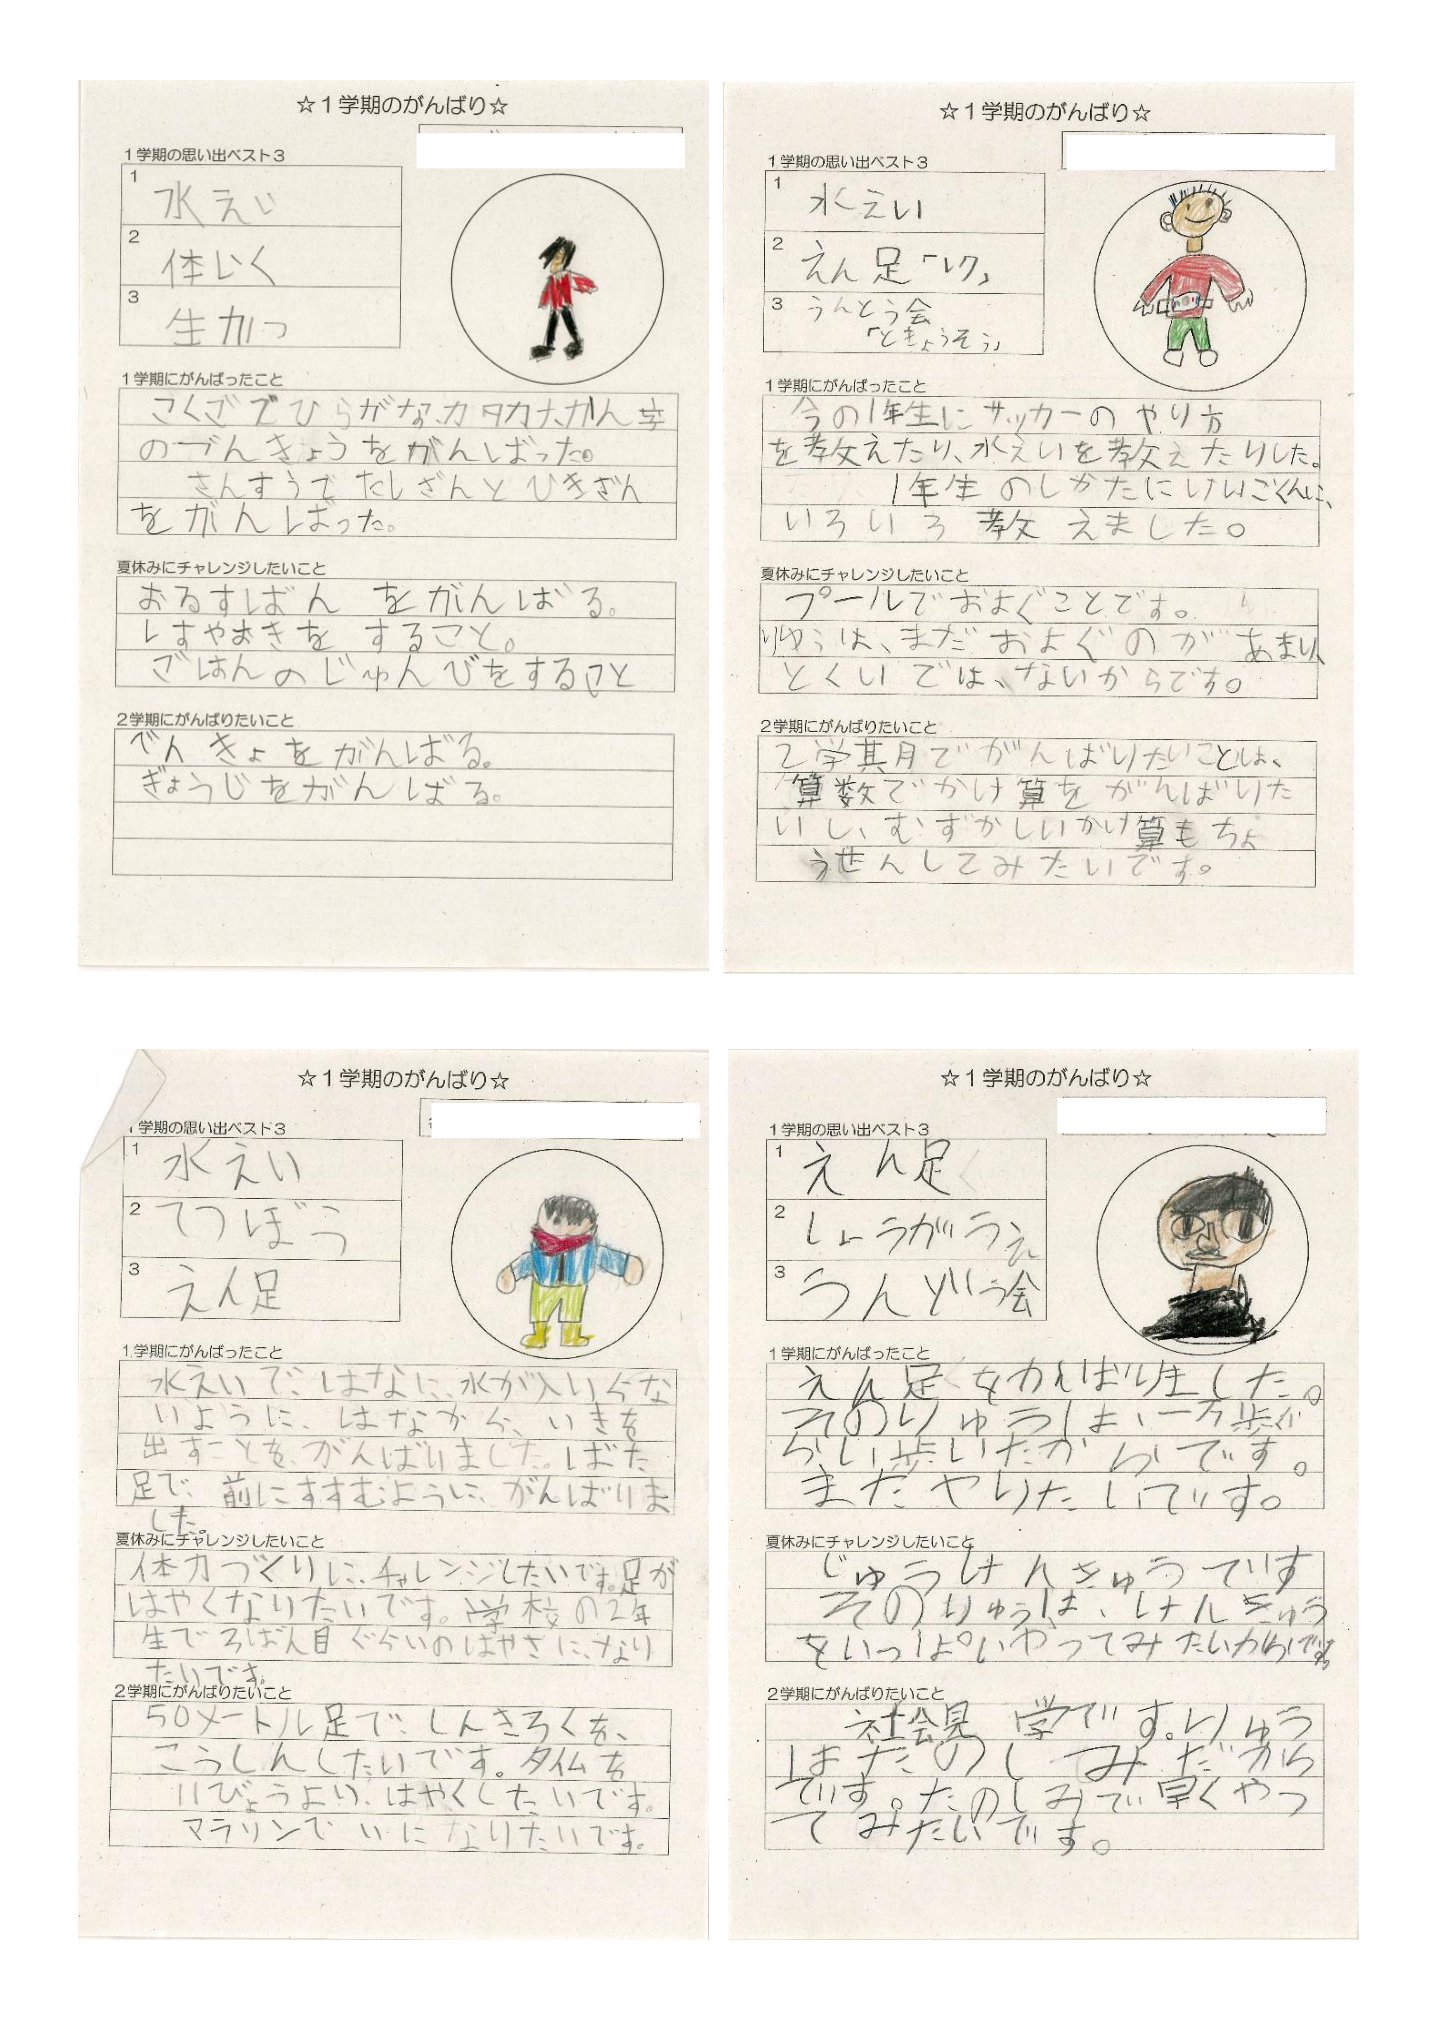 ☆1学期のがんばり☆
1学期の思い出ベスト3
1 水えい
2 体いく
3 生かつ
1学期にがんばったこと
こくごでひらがな、カタカナ、かん字
のべんきょうをがんばった。
さんすうでたしざんとひきざん
をがんばった。
夏休みにチャレンジしたいこと
おるすばん をがんばる。
しすやおきを すること。
ごはんのじゅんびをすること
2学期にがんばりたいこと
でんきょをがんばる。
ぎょうじをがんばる。
☆1学期のがんばり☆
1学期の思い出ベスト3
1 水えい
2 えん足「レク」
3 うんとう会
「ときょうそう」
1学期にがんばったこと
今の1年生にサッカーのやり方
を教えたり、水えいを教えたりした。
1年生のしかたにけんごくんに、
いろいろ教えました。
夏休みにチャレンジしたいこと
プールでおよぐことです。
りゆうは、まだおよぐのがあまり、
とくいでは、ないからです。
2学期にがんばりたいこと
2学期でがんばりたいことは、
算数でかけ算をがんばりた
いし、むずかしいかけ算もちょ
うせんしてみたいです。
☆1学期のがんばり☆
1学期の思い出ベスト3
1 水えい
2 てつぼう
3 えん足
1学期にがんばったこと
水えいで、はなに、水が入いらな
いように、はなから、いきを
出すことを、がんばいました。ばた
足で、前にすすむように、がんばりま
した。
夏休みにチャレンジしたいこと
体力づくりに、チャレンジしたいです。足が
はやくなりたいです。学校の2年
生で3ばん目ぐらいのはやさに、なり
たいです。
2学期にがんばりたいこと
50メートル足で、しんきろくを、
こうしんしたいです。タイムを
11びょうより、はやくしたいです。
マラソンで いに なりたいです。
☆1学期のがんばり☆
1学期の思い出ベスト3
1 えん足
2 しょうがうえ
3 うんどう会
1学期にがんばったこと
えん足をかんばり生した。
そのりゅうは、一万歩ぐ
らい歩いたからです。
まだやりたいです。
夏休みにチャレンジしたいこと
じゅうけんきゅうです
そのりゅうは、けんきゅう
をいっぱいやってみたいからです。
2学期にがんばりたいこと
社会見学です。りゅう
はたのしみだから
です。たのしみで早くやっ
てみたいです。